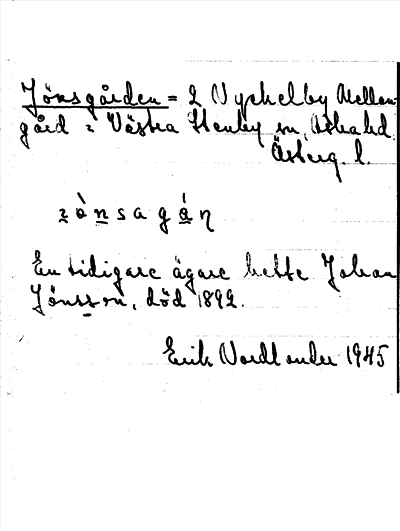 Jönsgården = 2 Nyckelby Mellan-
gård i Västra Stenby sn, Aska hd.
Österg. l.
z ò n s a g á ŋ
En tidigare ägare hette Johan
Jönsson, död 1892.
Erik Nordlander 1945